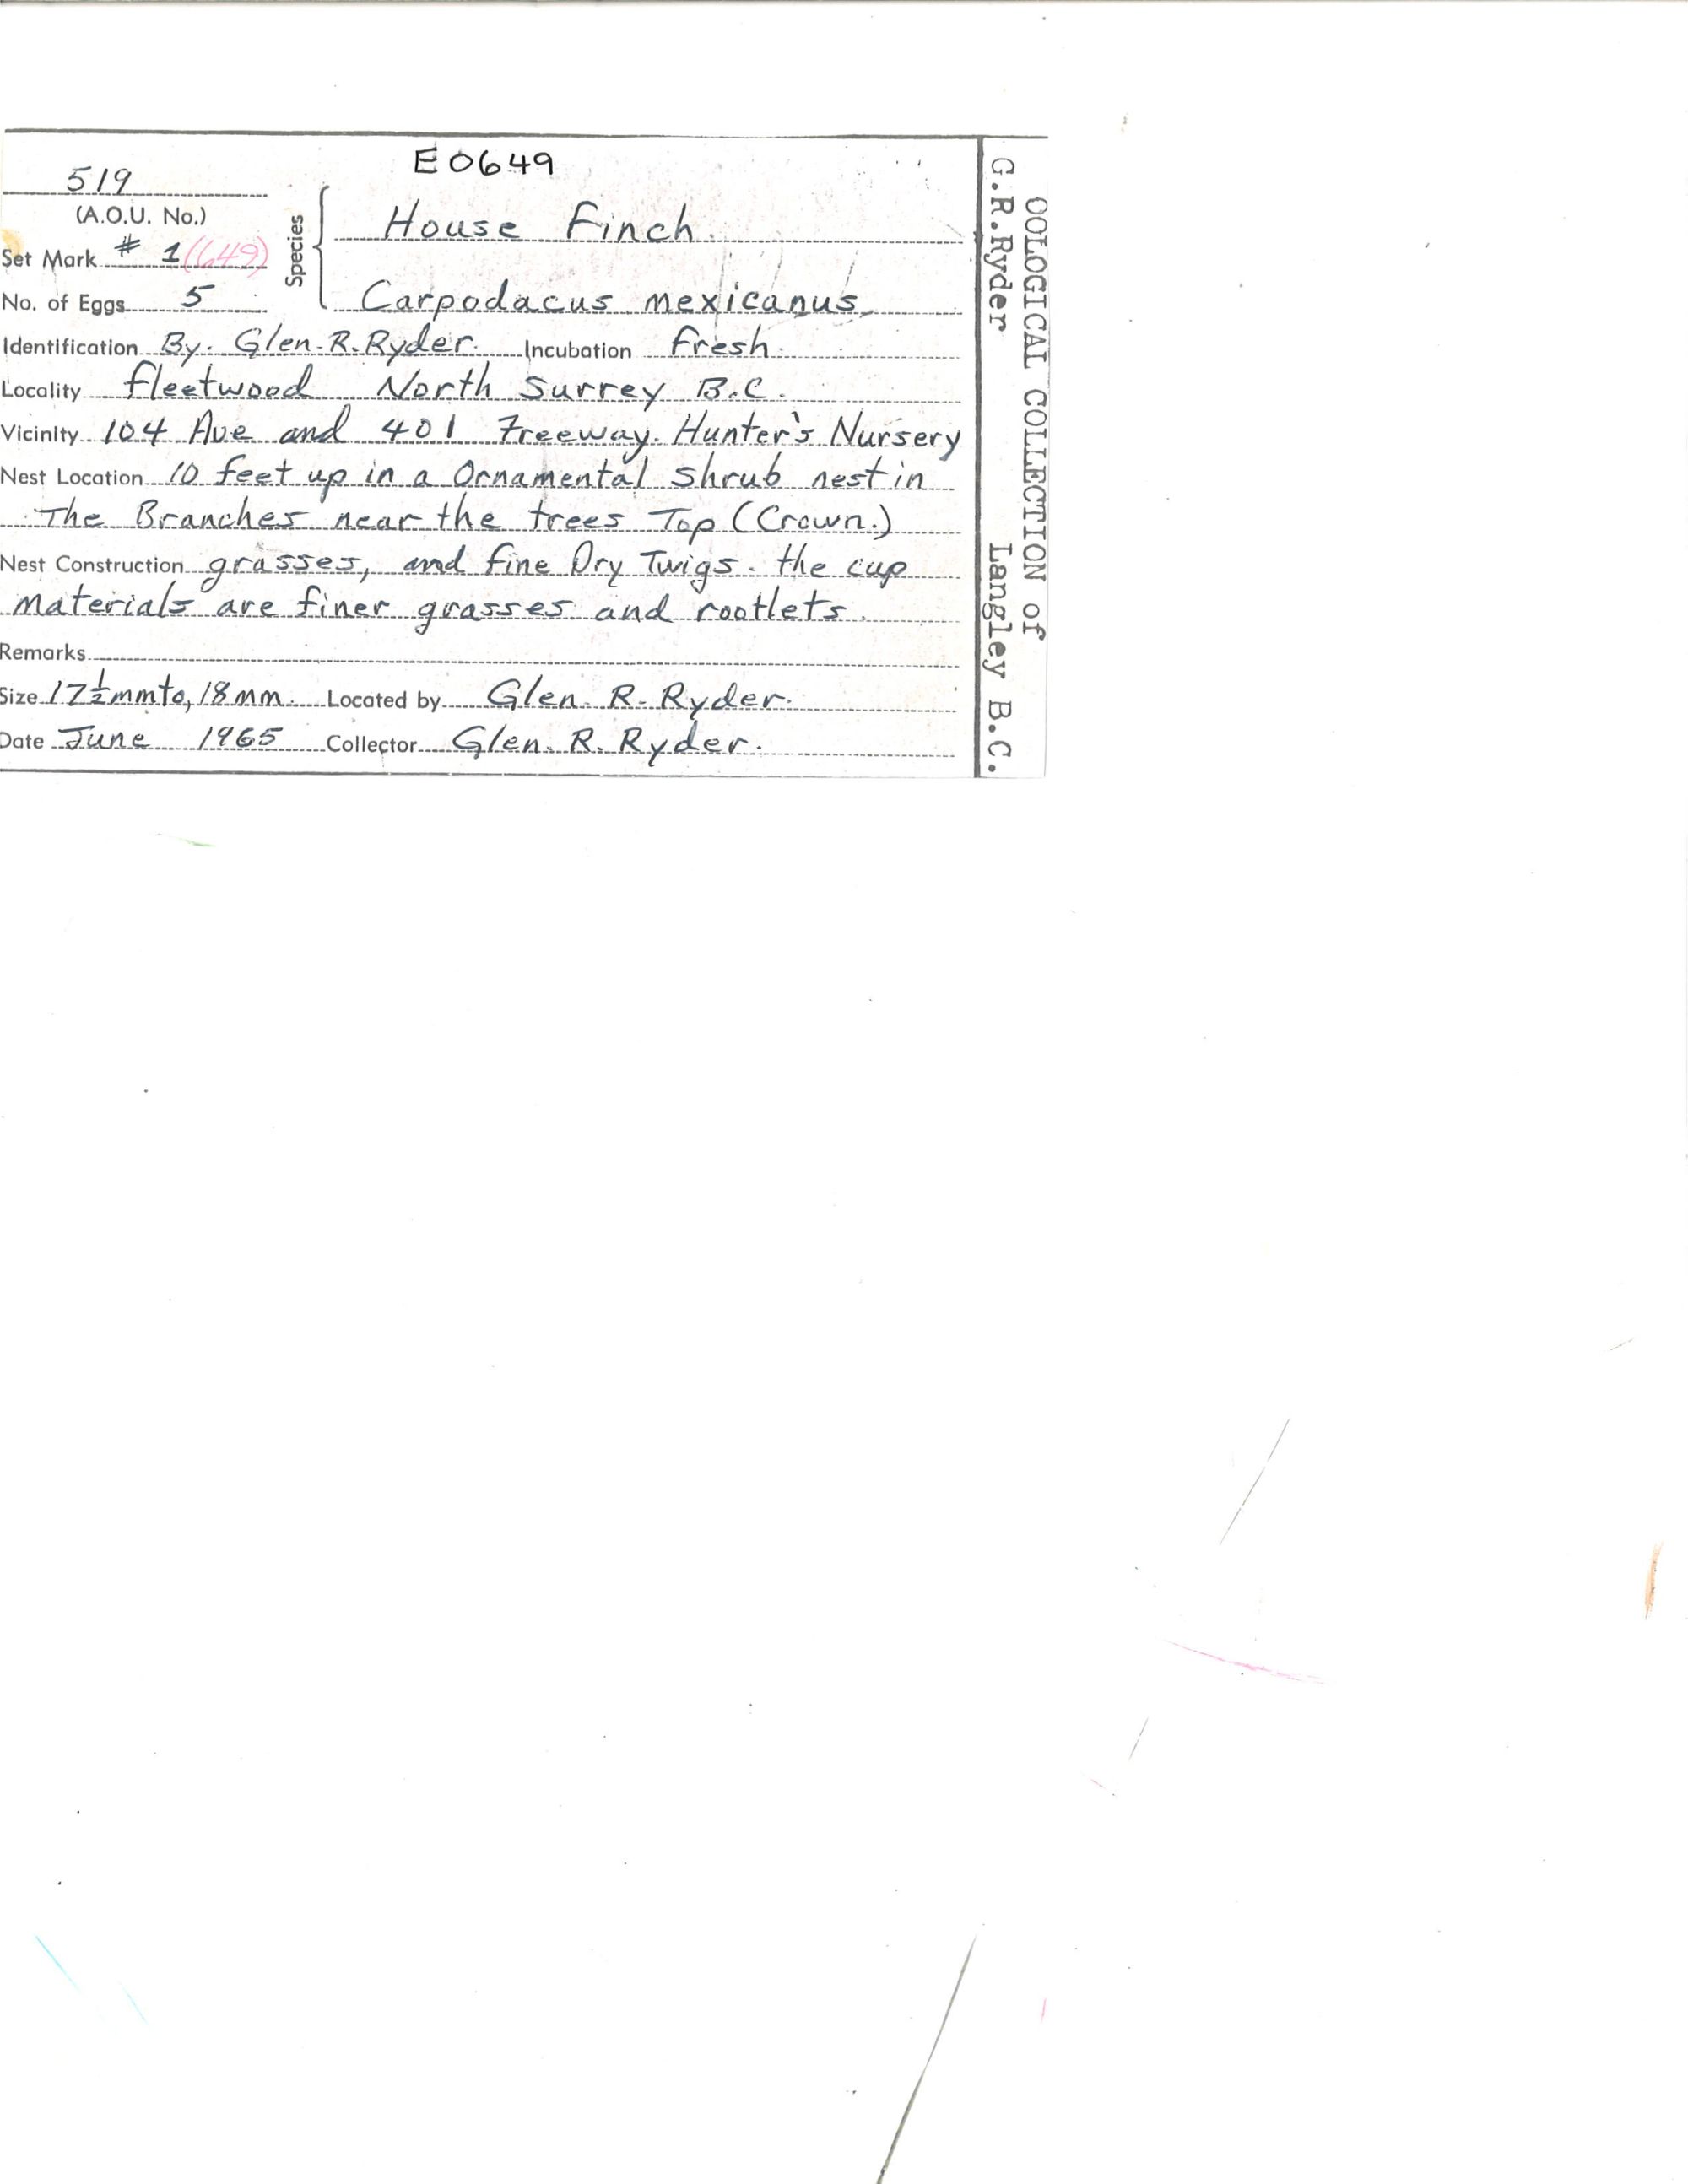 E0649
519
(A.O.U. No.)
Species
House Finch.
Set Mark # 1 (649)
Carpodacus mexicanus.
No. of Eggs 5
Identification By. Glen. R. Ryder. Incubation Fresh.
Locality fleetwood North Surrey B.C.
Vicinity 104 Ave and 401 Freeway. Hunter's Nursery
Nest Location 10 feet up in a Ornamental shrub nest in
The Branches near the trees Top (Crown.)
Nest Construction grasses, and fine Dry Twigs. the cup
materials are finer grasses and rootlets.
Remarks
Size 17 ½ mm to, 18 mm. Located by Glen. R. Ryder.
Date June 1965 Collector Glen. R. Ryder.
OOLOGICAL COLLECTION of
G.R.Ryder Langley B.C.